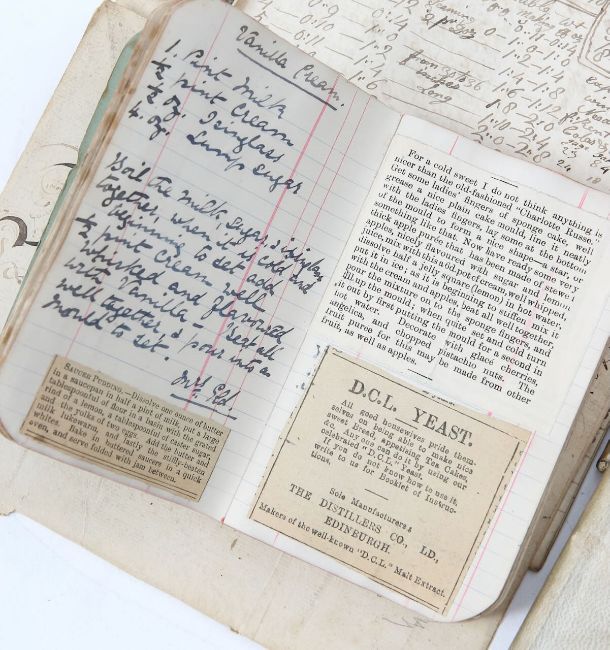 Vanilla Cream.
1. Pint Milk
½ pint Cream
½ oz. Isinglass
4. oz. Lump sugar
Boil the milk, sugar, & isinglass
together, when it is cold and
beginning to set add
½ pint Cream well
whisked and flavoured
with Vanilla – Beat all
well together & pour into a
mould to set.
SAUCER PUDDING.—Dissolve one ounce of butter
in a saucepan in half a pint of milk, put a large
tablespoonful of flour in a basin with the grated
rind of a lemon, a tablespoonful of caster sugar,
and the yolks of two eggs. Add the butter and
milk lukewarm, and lastly the stiffly-beaten
whites. Bake in buttered saucers in a quick
oven, and serve folded with jam between.
For a cold sweet I do not think anything is
nicer than the old-fashioned "Charlotte Russe."
Get some ladies' fingers of sponge cake, well
grease a nice plain cake mould, line it neatly
with the ladies fingers, lay some at the bottom
of the mould to form a nice shape—a star, or
something like that. Now have made some very
thick apple purée that has been made of stewed
apples, nicely flavoured with sugar and lemon
juice, mix with this add pure cream, well whipped,
dissolve half a jelly square (lemon) in hot water,
put it by ice; as it is beginning to stiffen, mix it
with the cream and apples, beat all well together,
pour the mixture on to the sponge fingers, and
fill up the mould; when quite set and cold turn
it out by first putting the mould for a second in
hot water. Decorate with glacé cherries,
angelica, and chopped pistachio nuts. The
fruit puree for this may be made from other
fruit, as well as apples.
D.C.L. YEAST.
All good housewives pride them-
selves on being able to make nice
sweet Bread, appetising Tea Cakes,
&c. Any one can do it by using our
celebrated "D.C.L." Yeast.
If you do not know how to use it,
write to us for Booklet of Instruc-
tions.
Sole Manufacturers
THE DISTILLERS CO., LD.,
EDINBURGH.
Makers of the well-known "D.C.L." Malt Extract.